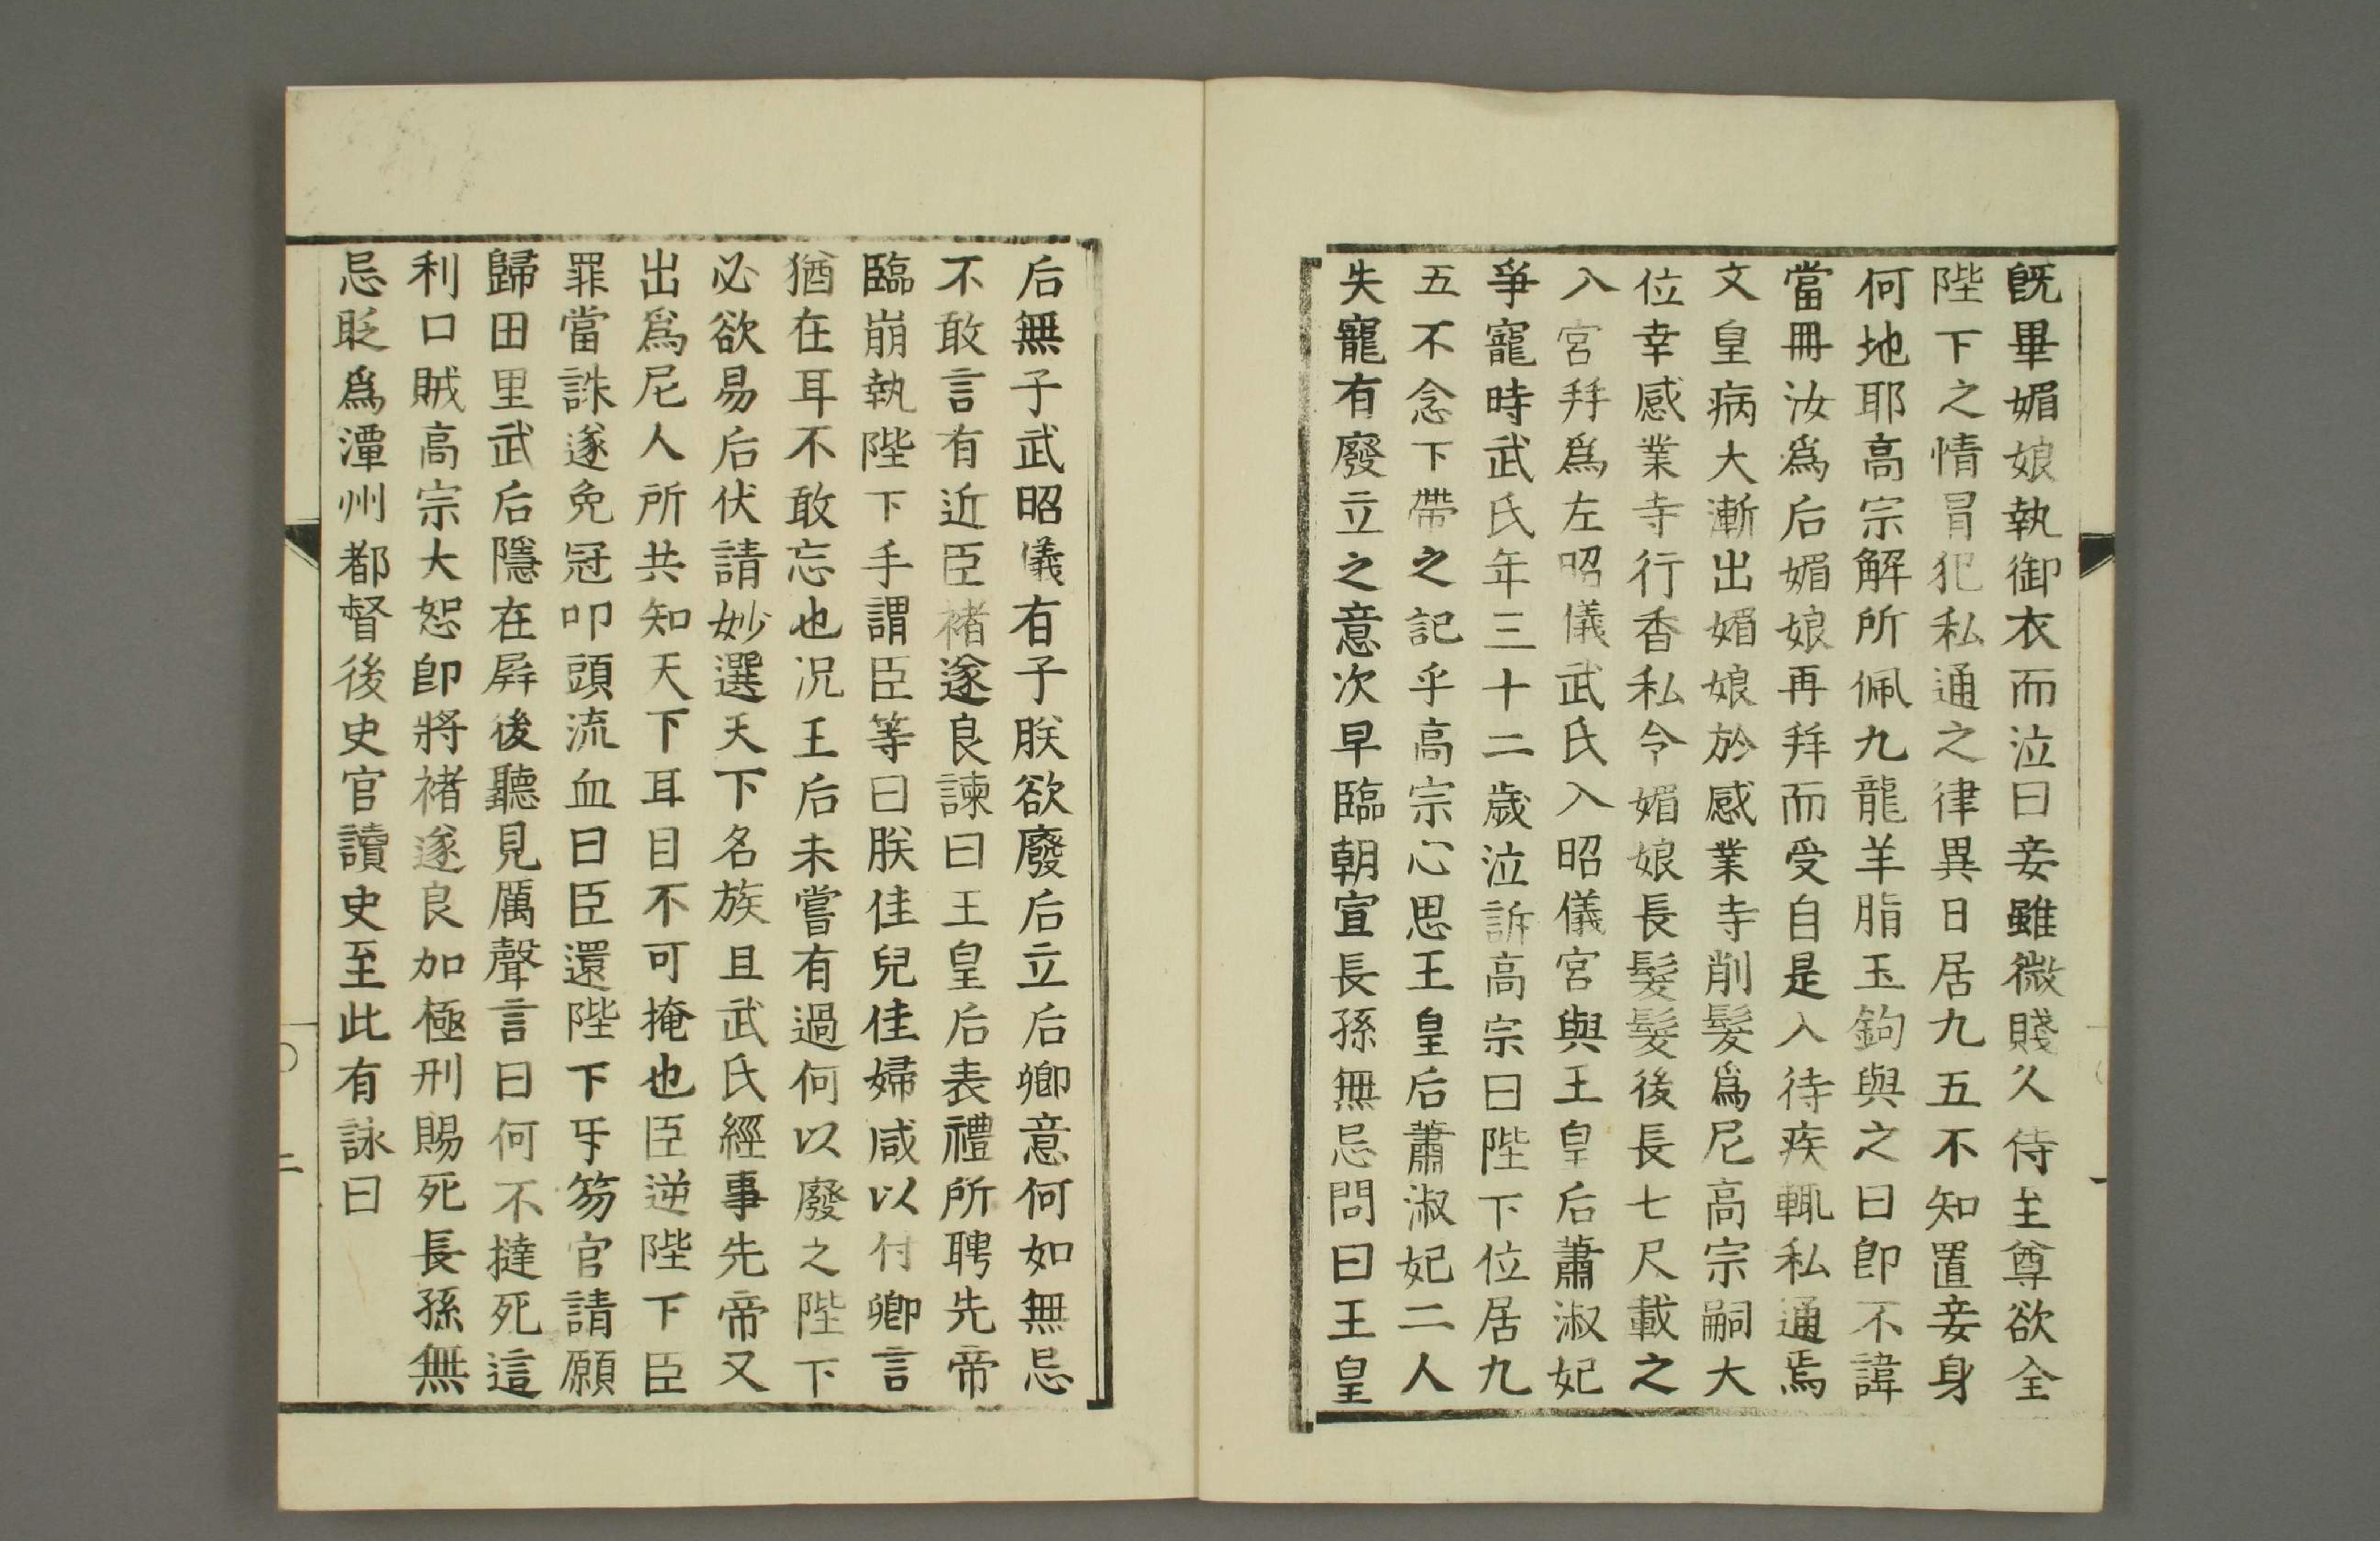 旣畢媚娘執御衣而泣曰妾雖微賤久侍至尊欲全
陛下之情冒犯私通之律異日居九五不知置妾身
何地耶高宗解所佩九龍羊脂玉鉤與之曰卽不諱
當冊汝爲后媚娘再拜而受自是入待疾輒私通焉
文皇病大漸出媚娘於感業寺削髮爲尼高宗嗣大
位幸感業寺行香私令媚娘長髮髮後長七尺載之
入宮拜爲左昭儀武氏入昭儀宮與王皇后蕭淑妃
爭寵時武氏年三十二歲泣訴高宗曰陛下位居九
五不念下帶之記乎高宗心思王皇后蕭淑妃二人
失寵有廢立之意次早臨朝宣長孫無忌問曰王皇
后無子武昭儀有子朕欲廢后立后卿意何如無忌
不敢言有近臣褚遂良諫曰王皇后表禮所聘先帝
臨崩執陛下手謂臣等曰朕佳兒佳婦咸以付卿言
猶在耳不敢忘也况王后未嘗有過何以廢之陛下
必欲易后伏請妙選天下名族且武氏經事先帝又
出爲尼人所共知天下耳目不可掩也臣逆陛下臣
罪當誅遂免冠叩頭流血曰臣還陛下牙笏官請願
歸田里武后隱在屛後聽見厲聲言曰何不撻死這
利口賊高宗大恕卽將褚遂良加極刑賜死長孫無
忌貶爲潭州都督後史官讀史至此有詠曰
二